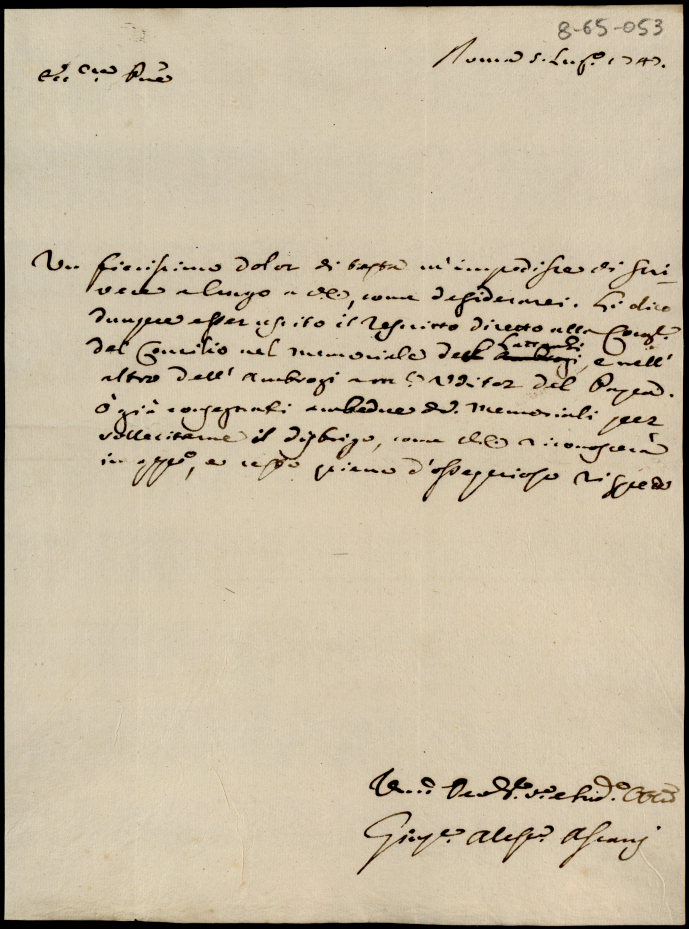 8-65-053
Roma 5. Lug.o 1747.
Ecc.mo P.ne
Un fierissimo dolor di testa m'impedisce di scri-
vere a lungo a V.E., come desiderarei. Li dico
dunque esser uscito il rescritto diretto alla Congr.
del Concilio nel memoriale del Lazzarini, e nell'
altro dell' Ambrogi a Uditor del Papa.
ò già consegnati ambedue d.i memoriali per
sollecitarne il disbrigo, come V.E. riconoscerà
in app.o, e resto pieno d'ossequioso rispetto
Giusep.e Aless.o Ascani